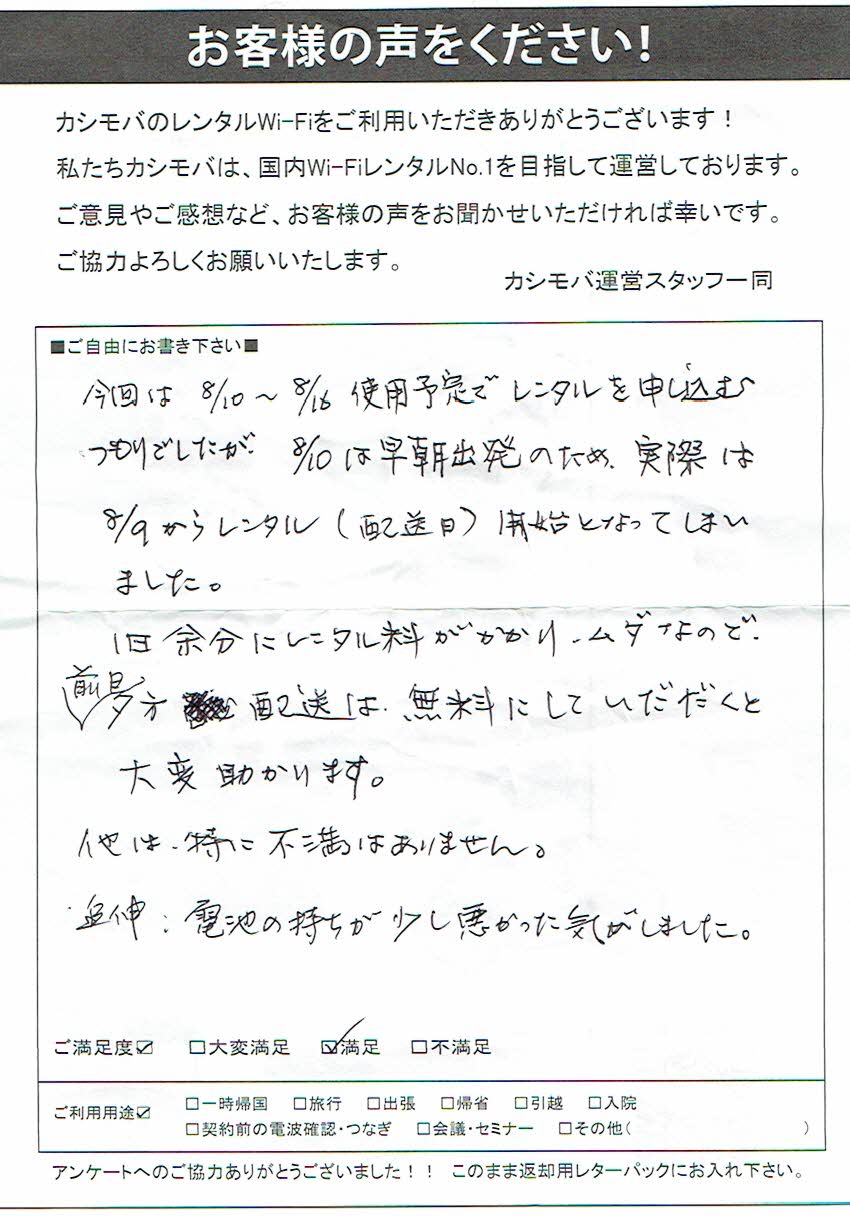 お客様の声をください!
カシモバのレンタルWi-Fiをご利用いただきありがとうございます!
私たちカシモバは、国内Wi-FiレンタルNo.1を目指して運営しております。
ご意見やご感想など、お客様の声をお聞かせいただければ幸いです。
ご協力よろしくお願いいたします。
カシモバ運営スタッフ一同
■ご自由にお書き下さい■
今回は 8/10～8/16 使用予定で レンタルを申し込む
つもりでしたが、8/10は早朝出発のため、実際は
8/9からレンタル(配送日)開始となってしまい
ました。
1日余分にレンタル料がかかり、ムダなので、
前日夕方 配送は、無料にしていだだくと
大変助かります。
他は、特に不満はありません。
追伸:電池の持ちが少し悪かった気がしました。
ご満足度☑ □大変満足 ☑満足 □不満足
ご利用用途☑ □一時帰国 □旅行 □出張 □帰省 □引越 □入院
□契約前の電波確認・つなぎ □会議・セミナー □その他( )
アンケートへのご協力ありがとうございました!! このまま返却用レターパックにお入れ下さい。